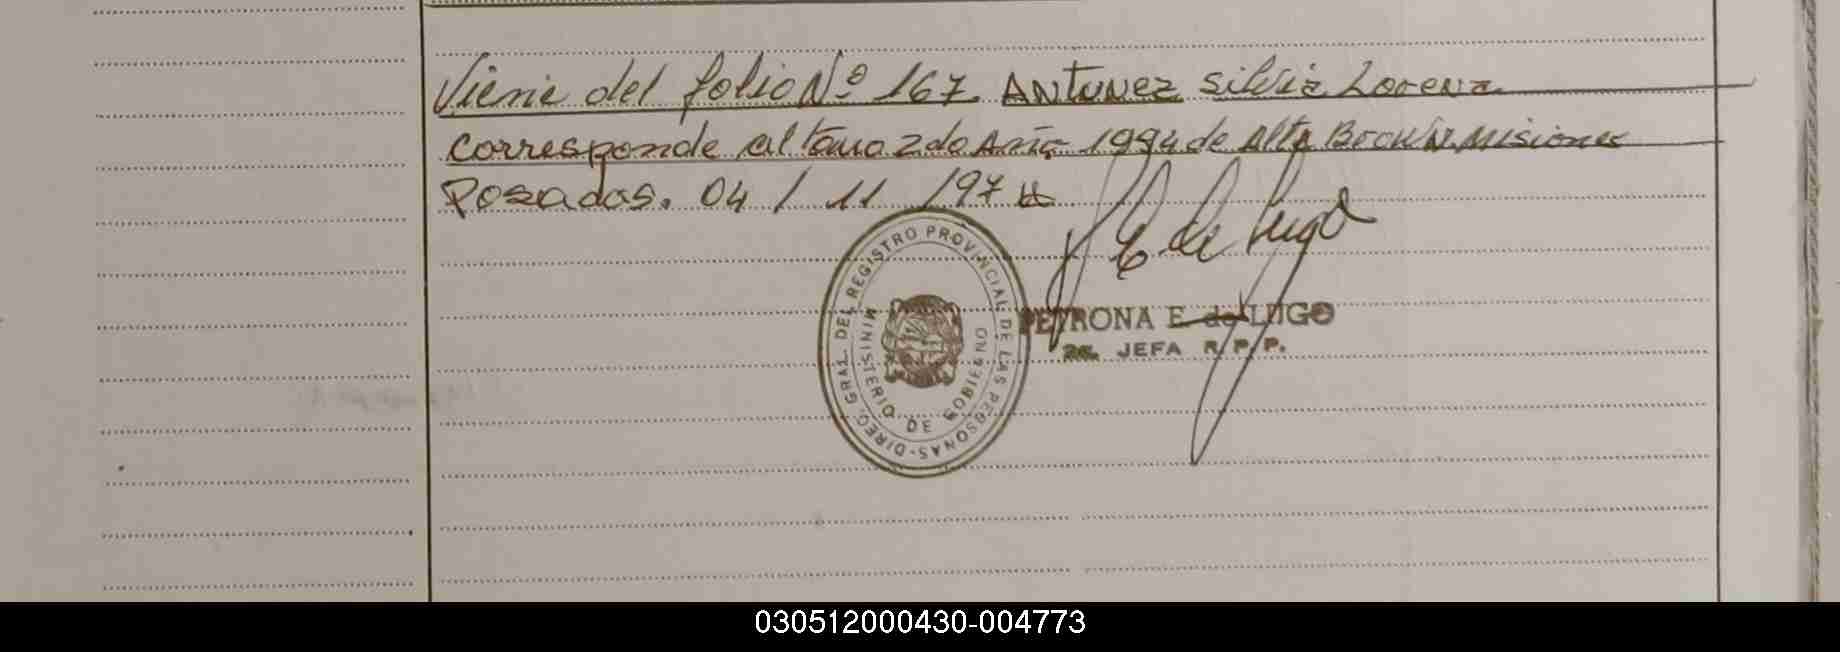 Viene del folio Nº 167. ANTUNEZ Silvia Lorena
corresponde al tomo 2do Año 1994 de Alte Brown. Misiones
Posadas. 04 / 11 / 97
P E de Lugo
PETRONA E. de LUGO
2a. JEFA R.P.P.
DIREC. GRAL. DEL REGISTRO PROVINCIAL DE LAS PERSONAS-
MINISTERIO DE GOBIERNO
030512000430-004773